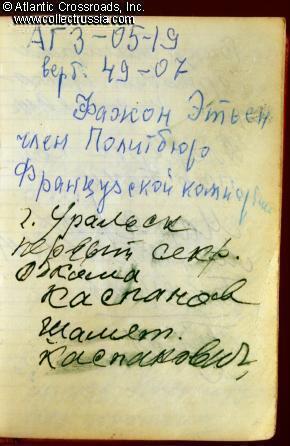 © Atlantic Crossroads, Inc.
www.collectrussia.com
АГ 3-05-19
верт. 49-07
Фажон Этьен
член Политбюро
Французской компартии
г. Уральск
первый секр.
обкома
Каспанов
Шамет.
Каспакович,